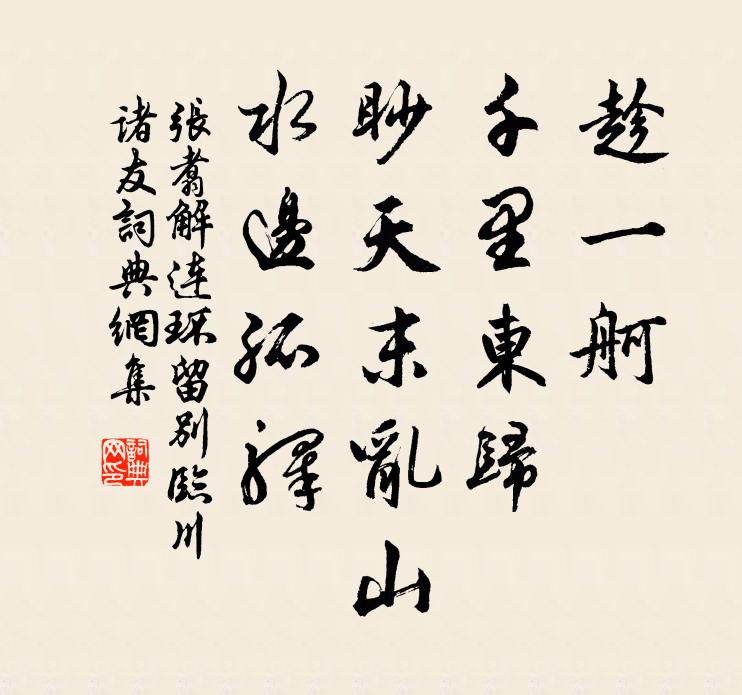 趁一舸
千里東歸
眇天末亂山
水邊孤驛
張翥解連環留別臨川
諸友詞典網集
詞典網印